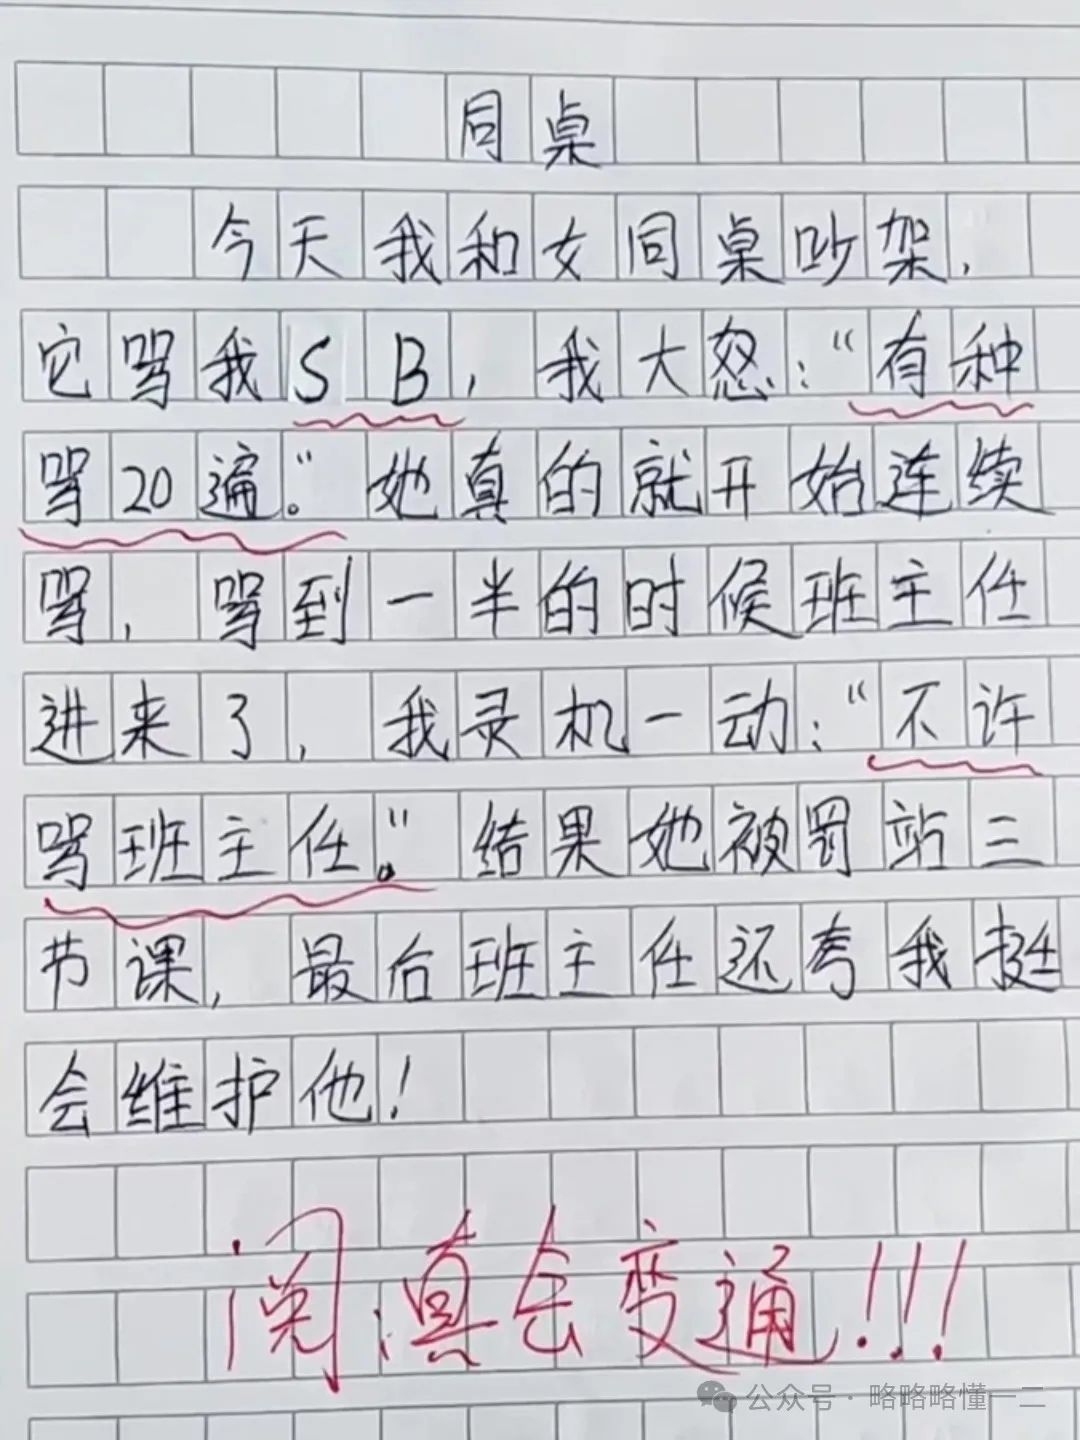 同桌
今天我和女同桌吵架,
它骂我SB,我大怒:“有种
骂20遍。”她真的就开始连续
骂,骂到一半的时候班主任
进来了,我灵机一动:“不许
骂班主任。”结果她被罚站三
节课,最后班主任还夸我挺
会维护他!
阅:真会变通!!!
公众号·略略略懂一二